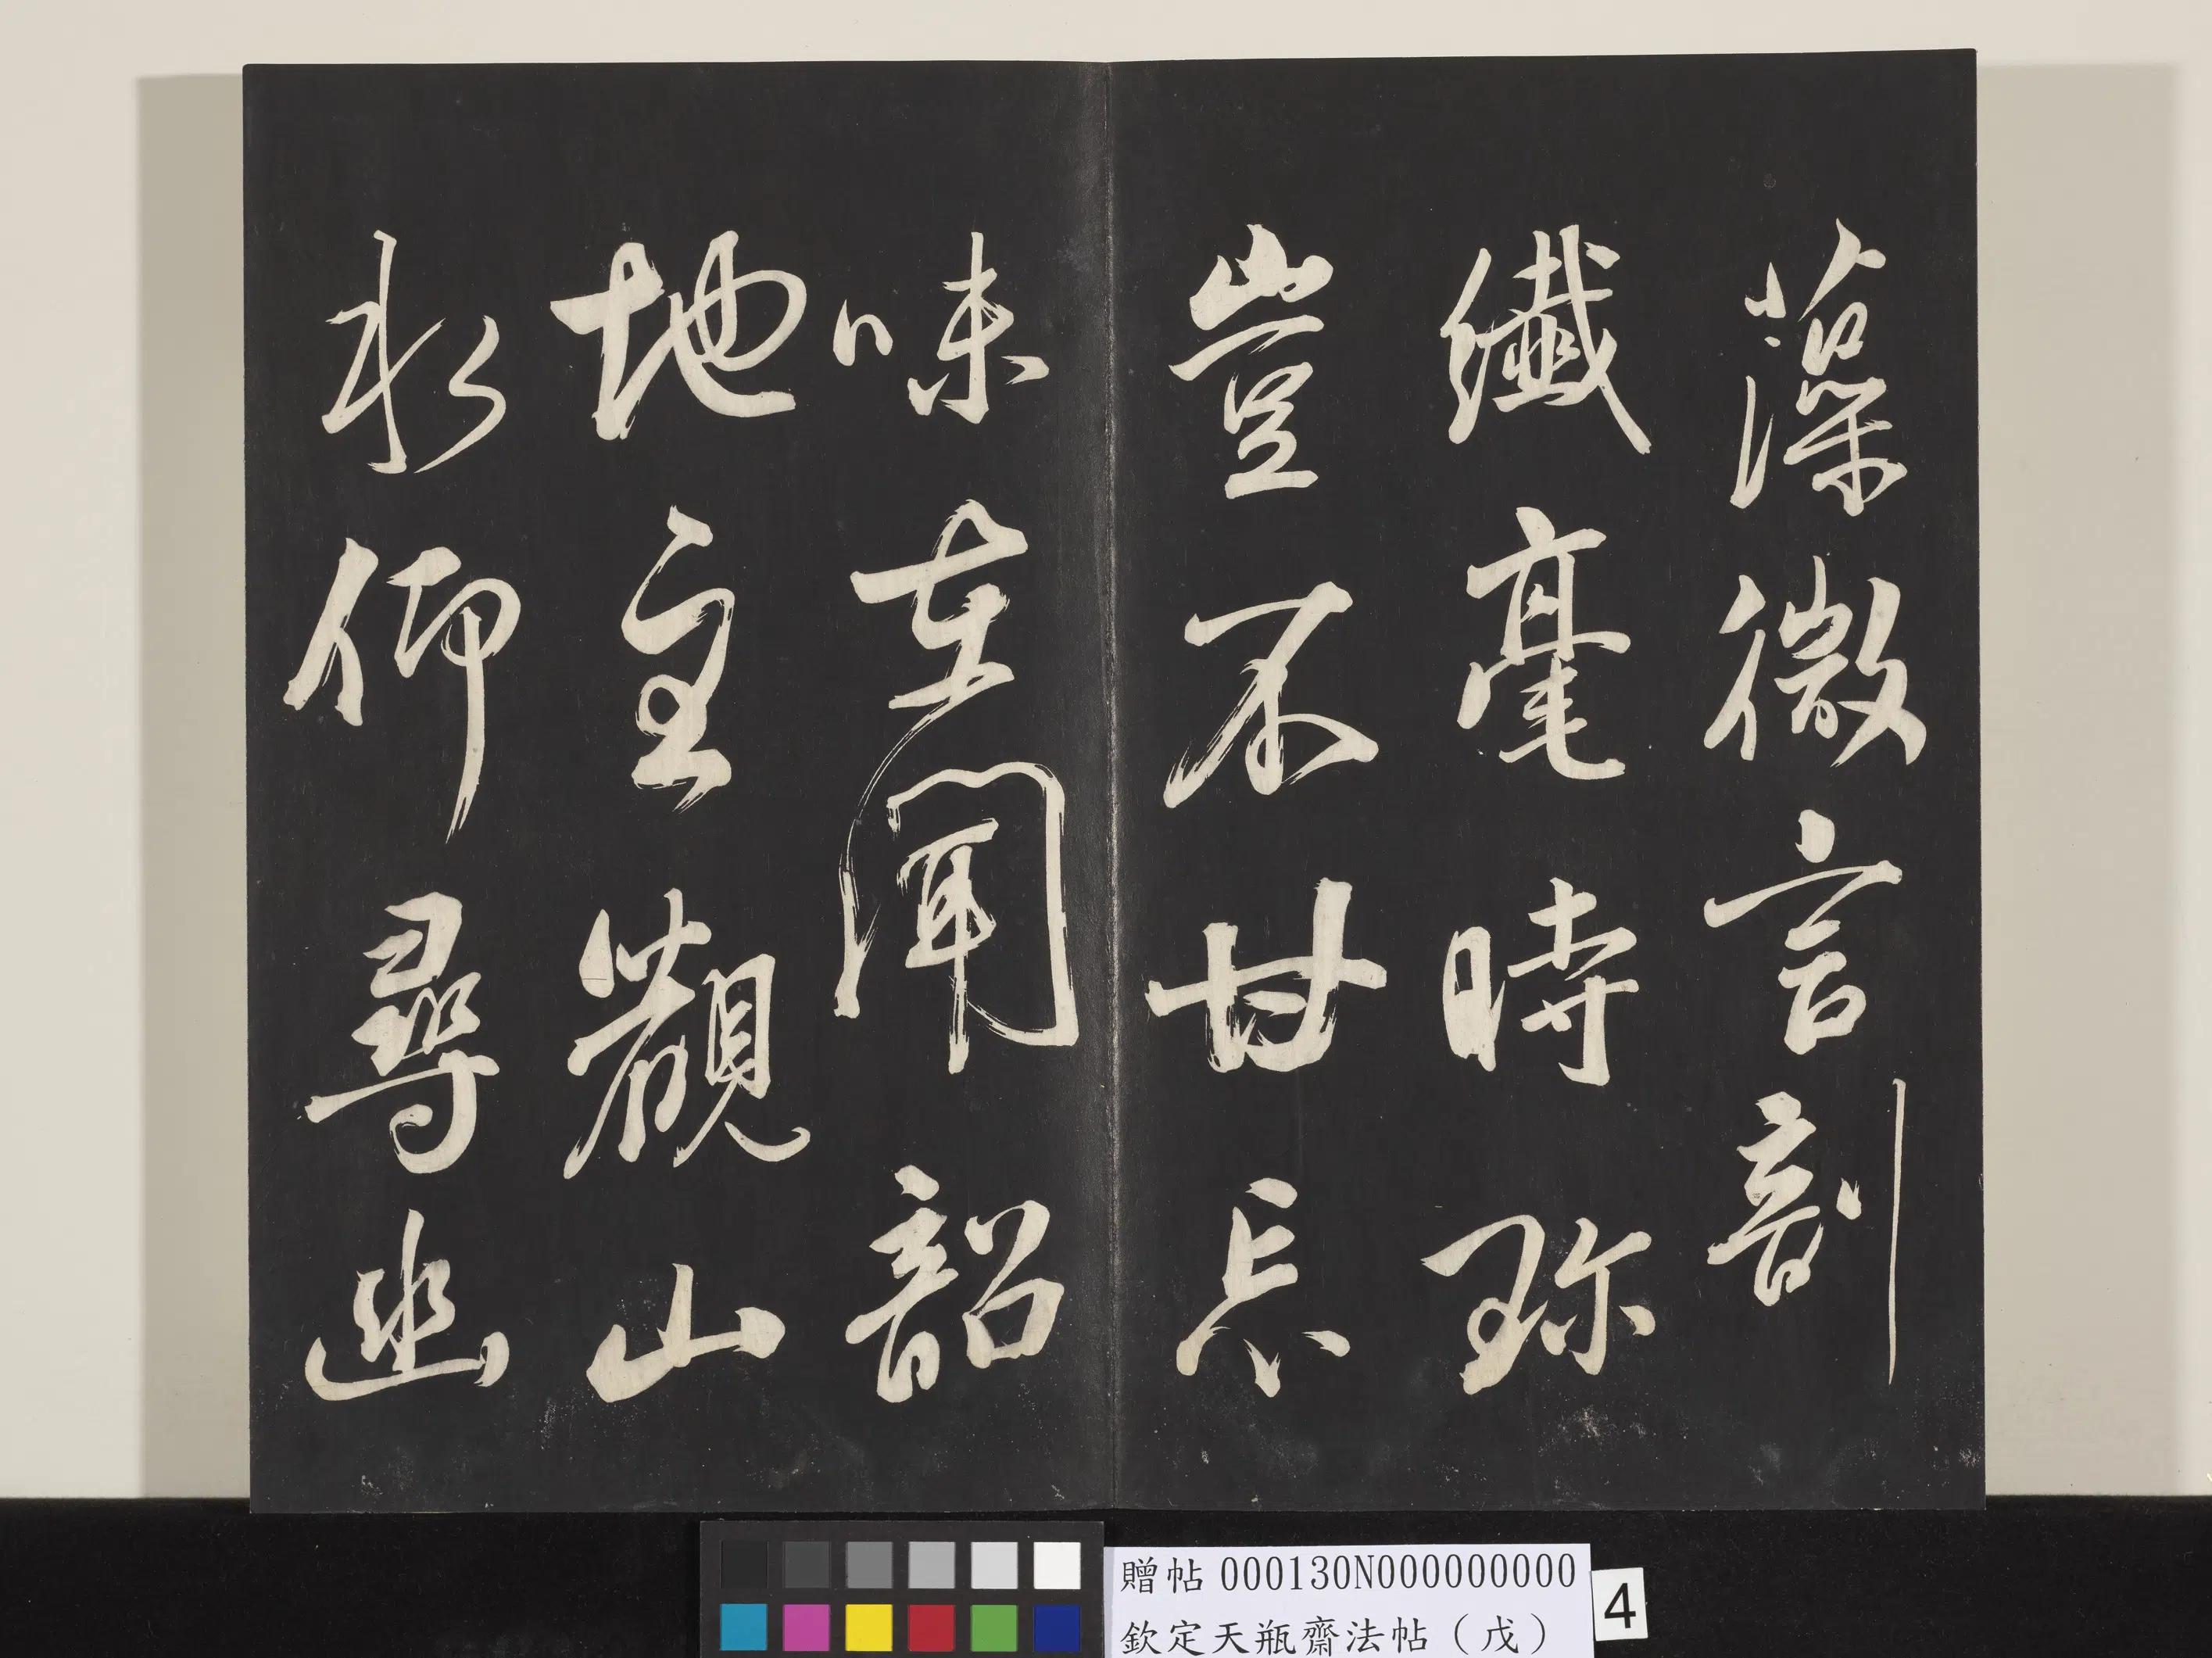 藻微言剖
纖毫時珎
豈不甘忘
味在聞韶
地主觀山
水仰尋幽
贈帖 000130N000000000
欽定天瓶齋法帖（戊）
4